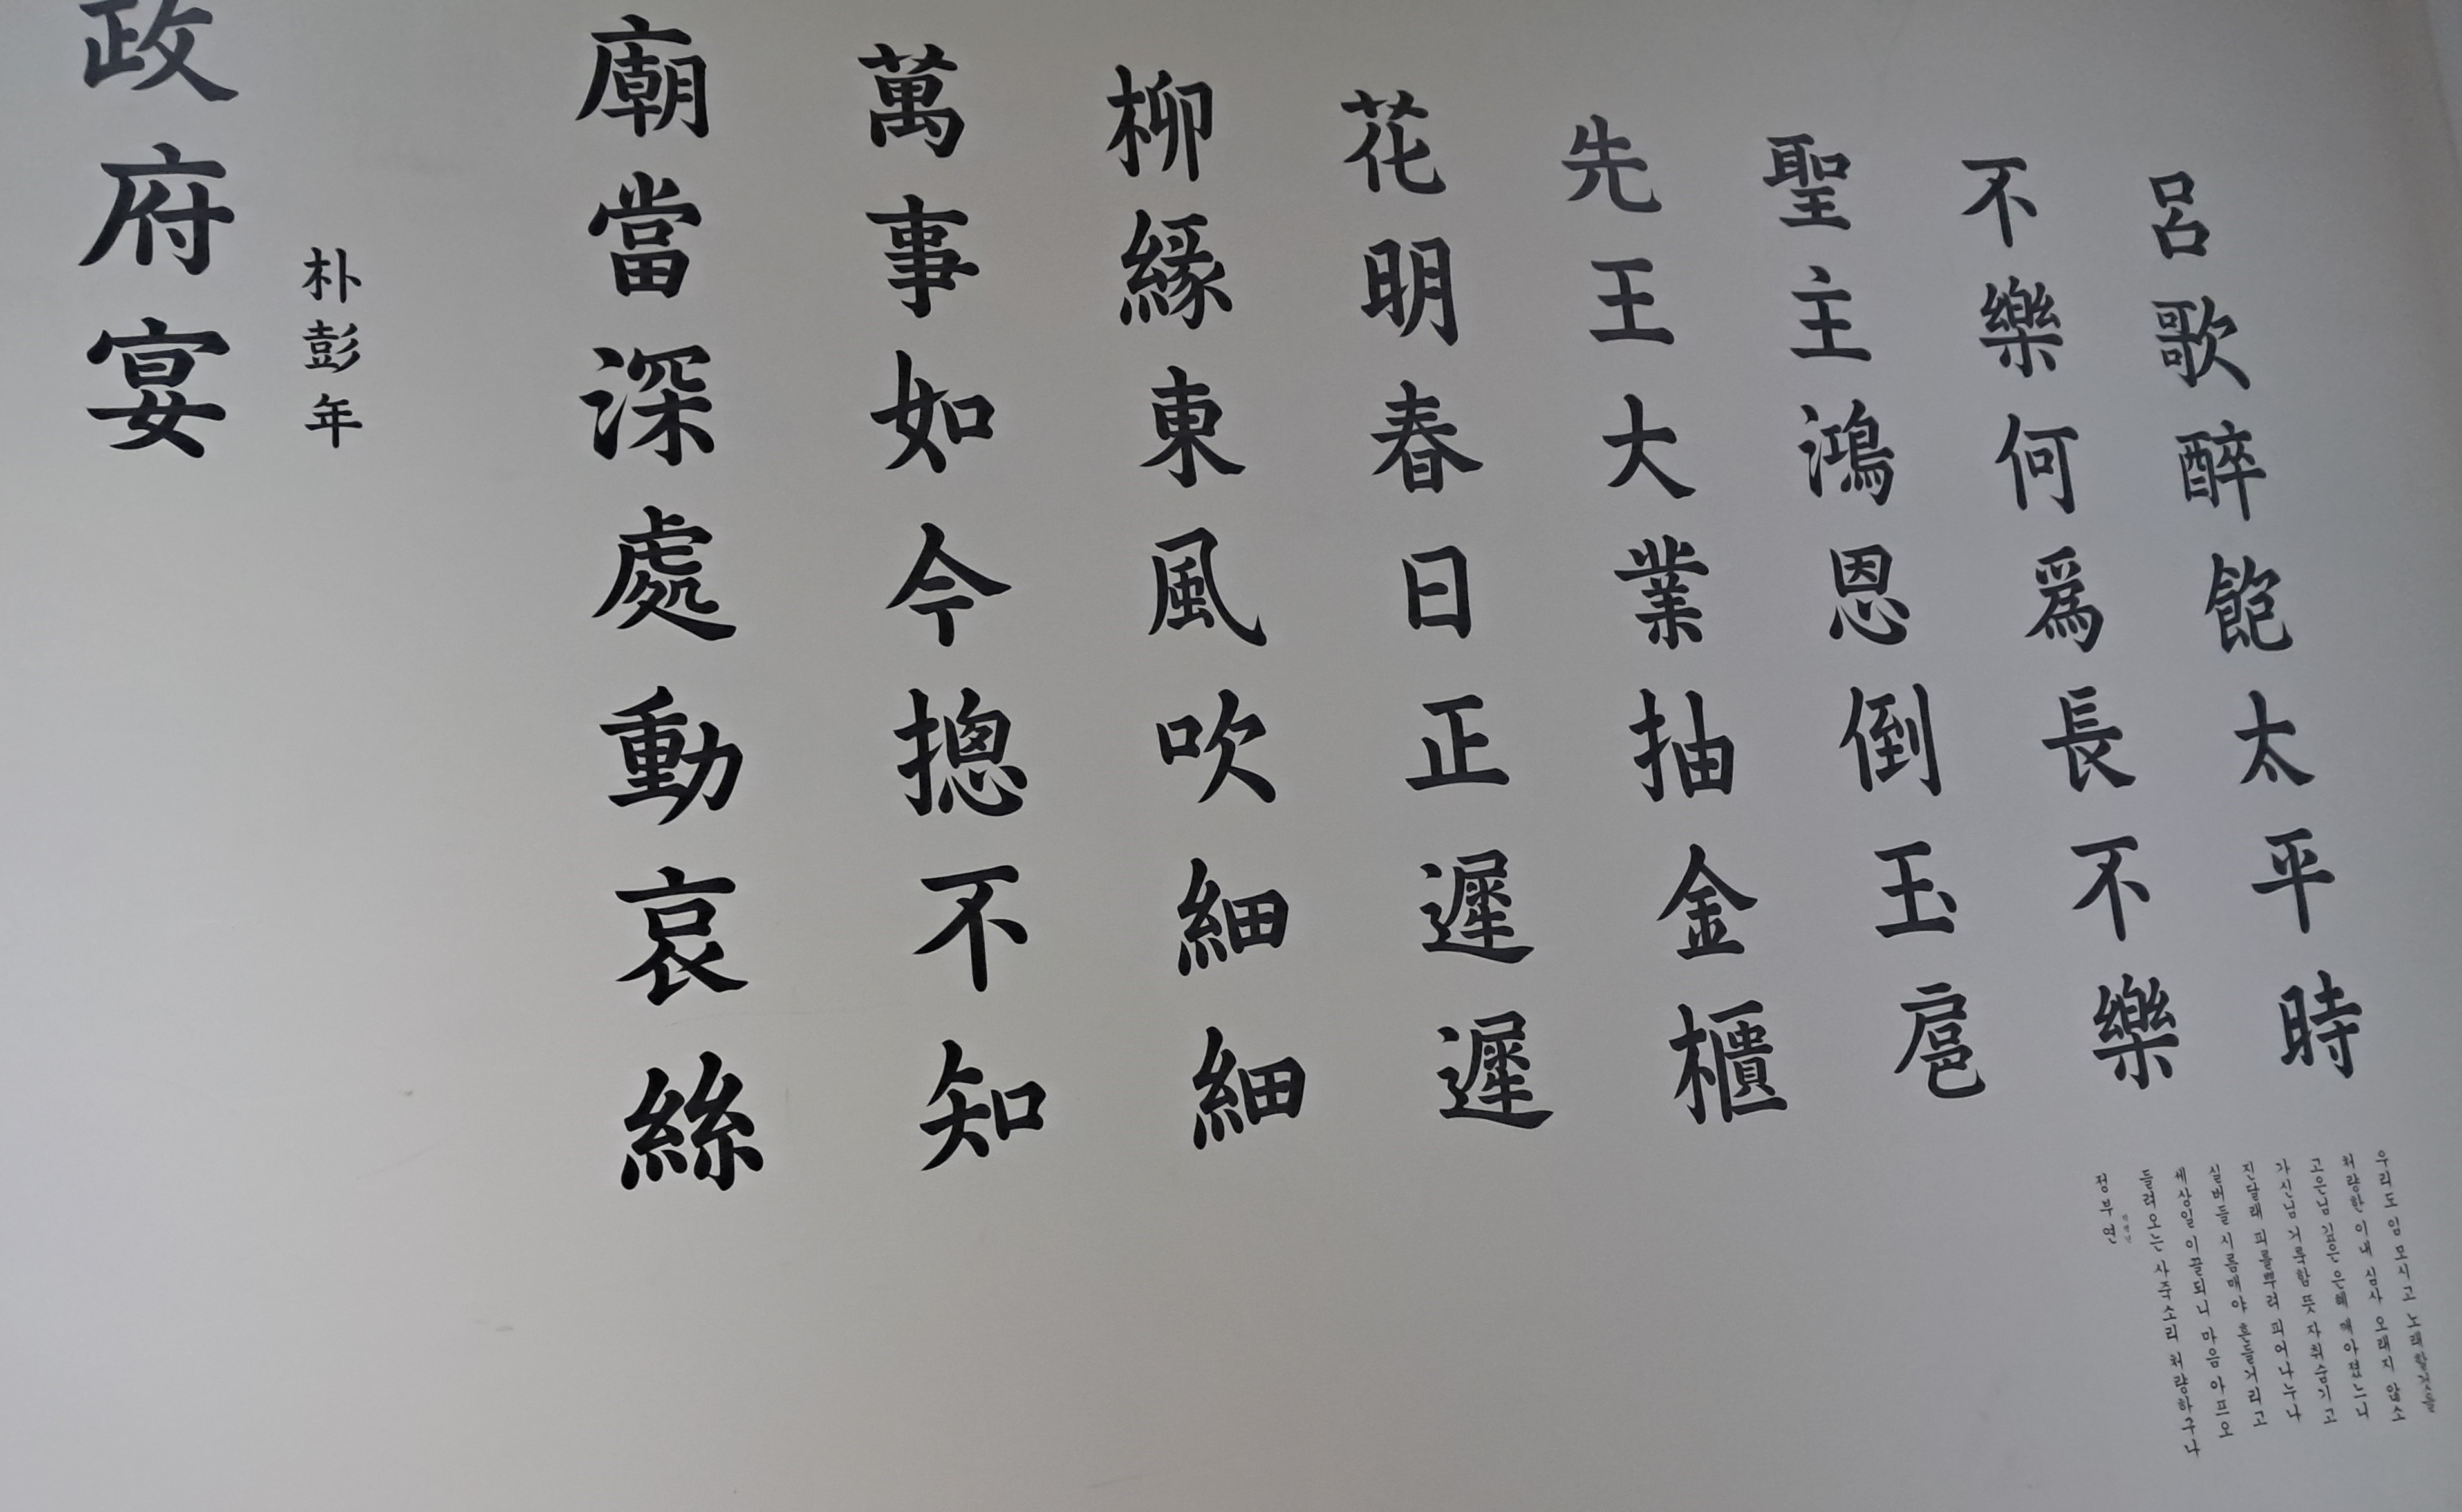 政府宴
朴彭年
廟當深處動哀絲
萬事如今摠不知
柳緣東風吹細細
花明春日正遲遲
先王大業抽金櫃
聖主鴻恩倒玉巵
不樂何爲長不樂
呂歌醉飽太平時
정부연
들려오는 사죽소리 처량하구나
세상일 이쯤되니 마음 아파오
실버들 흔들거리고
진달래 피어나누나
가신님 거룩한 뜻
고운님 깊은 은혜
처량한 이내 심사 오래지 않소
우리도 임 모시고